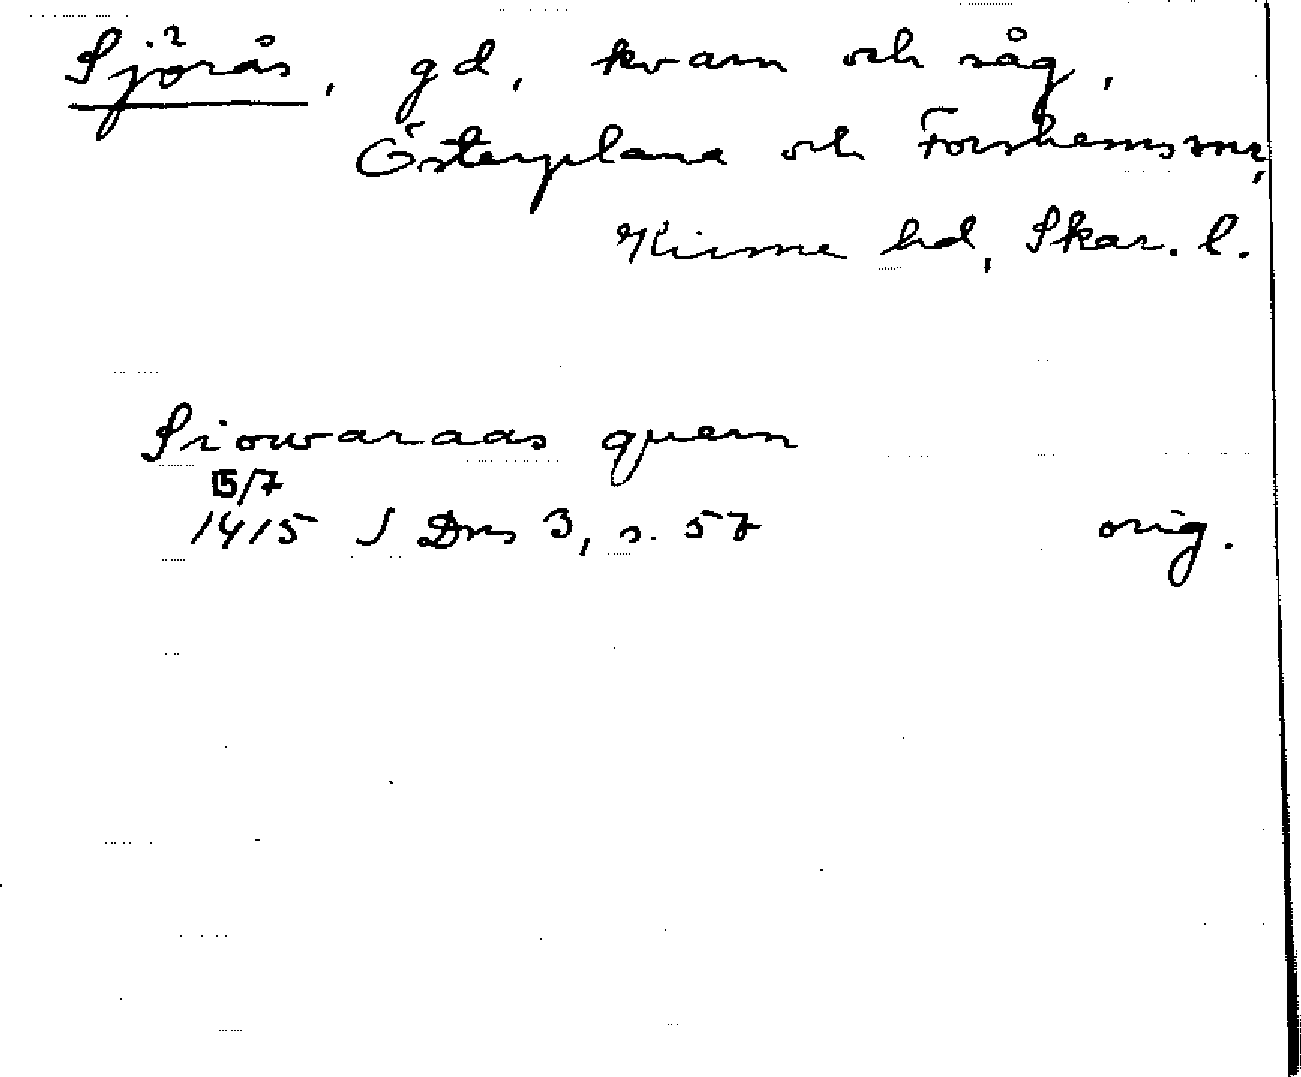 Sjörås, gd, kvarn och såg,
Österplana och Forshems snr,
Kinne hd, Skar. l.
Siowaraas quern
15/7
1415 J Dns 3, s. 57 orig.